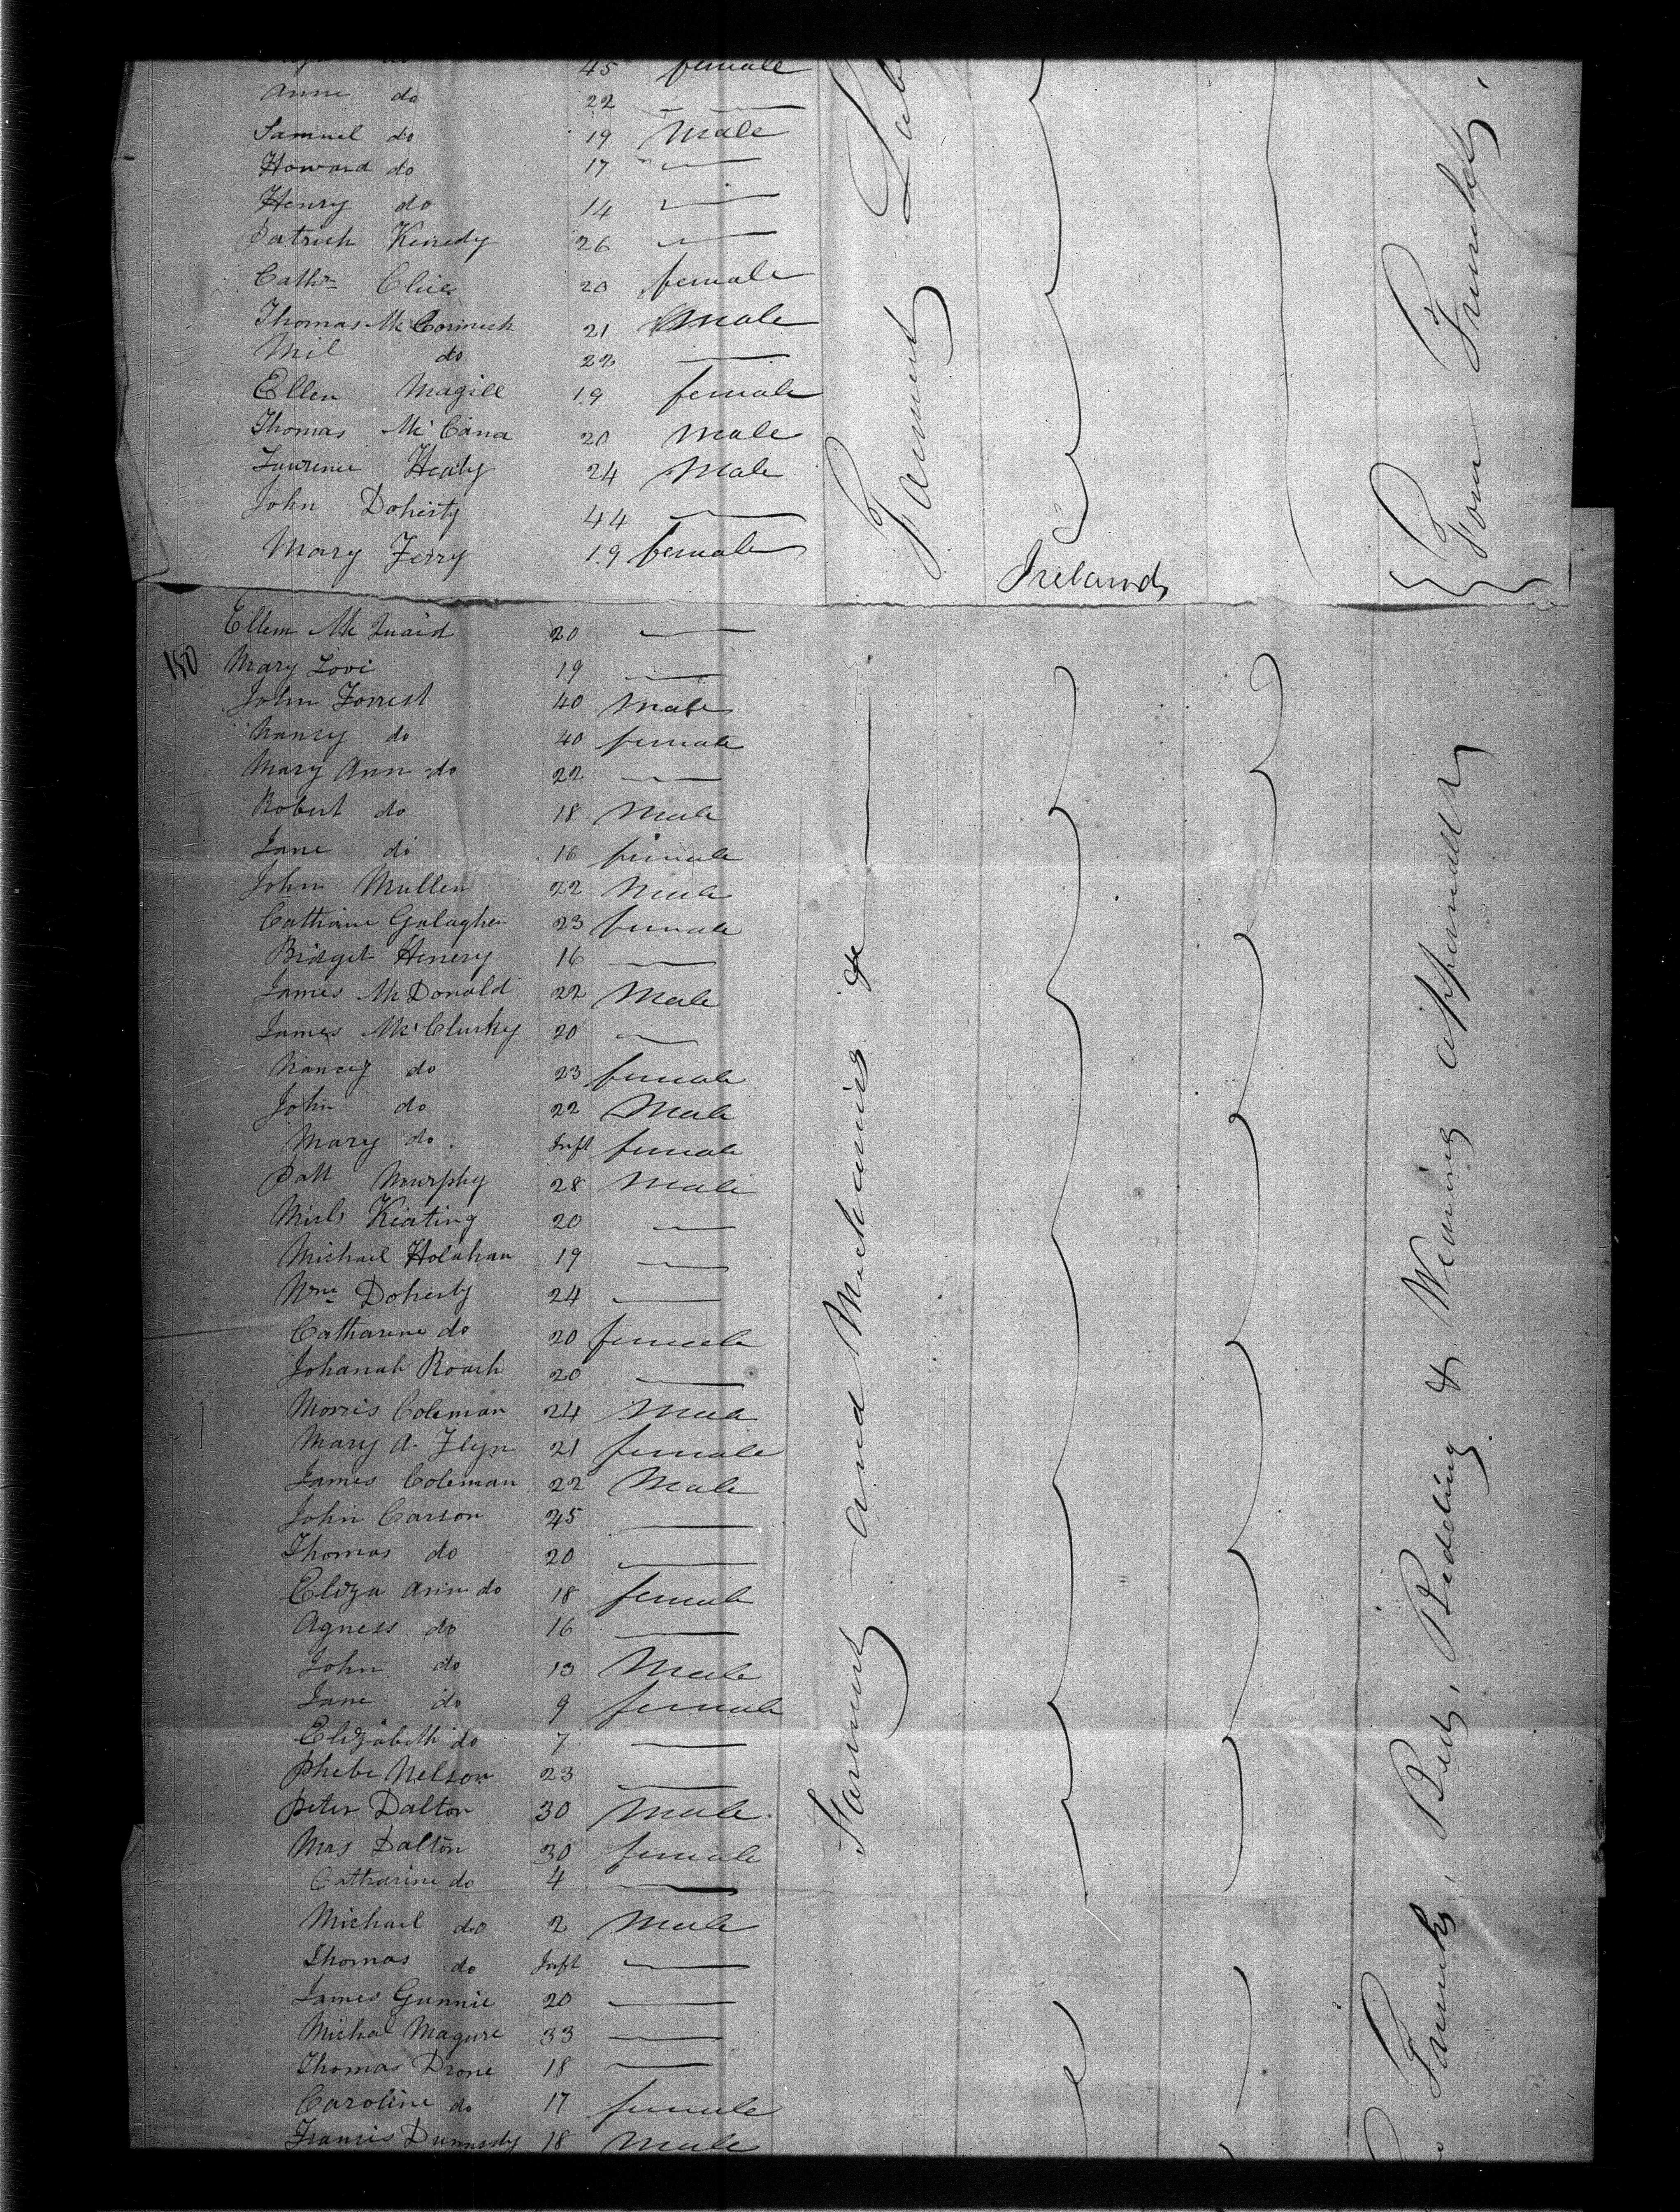 45 female
Anne do 22 —
Samuel do 19 Male
Howard do 17 —
Henry do 14 —
Patrick Kenedy 26 —
Cathn 20 female
Thomas McCormick 21 Male
Mil do 22 —
Ellen Magill 19 female
Thomas McCana 20 Male
Laurence Healy 24 Male
John Doherty 44 —
Mary Ferry 19 female
Farmers
Ireland
Four Trunks
Ellen McQuaid 20 —
150 Mary Lovi 19 —
John Forrest 40 Male
Nancy do 40 female
Mary Ann do 22 —
Robert do 18 Male
Jane do 16 female
John Mullen 22 Male
Catharine Galagher 23 female
Bridget Henery 16 —
James McDonald 22 Male
James McClusky 20 —
Nancy do 23 female
John do 22 Male
Mary do Inft female
Patt Murphy 28 Male
Keating 20 —
Michael Holahan 19 —
Wm Doherty 24 —
Catharine do 20 female
Johanah Roach 20 —
Morris Coleman 24 Male
Mary A. Flyn 21 female
James Coleman 22 Male
John Carson 45 —
Thomas do 20 —
Eliza Ann do 18 female
Agness do 16 —
John do 13 Male
Jane do 9 female
Elizabeth do 7 —
Phebe Nelson 23 —
Peter Dalton 30 Male
Mrs Dalton 30 female
Catharine do 4 —
Michael do 2 Male
Thomas do Inft —
James Gunnie 20 —
Michal Magure 33 —
Thomas Drone 18 —
Caroline do 17 female
Francis 18 Male
Farmers and Mechanics &c
Trunks, Beds, Bedding & Wearing apparrell